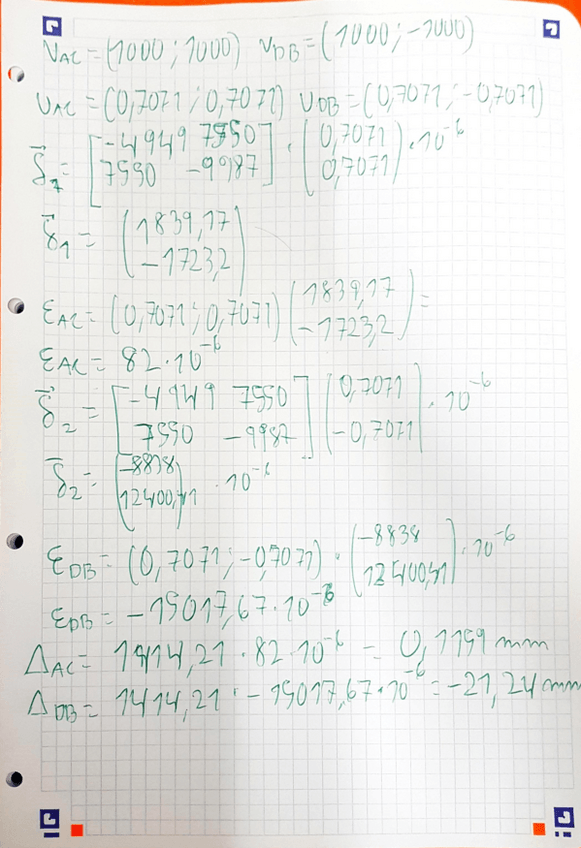 V_AC = (1000 ; 1000) V_DB = (1000 ; -1000)
U_AC = (0,7071 ; 0,7071) U_DB = (0,7071 ; -0,7071)
δ⃗_1 = [-4949 7550 ; 7550 -9987] · (0,7071 ; 0,7071) · 10^-6
δ⃗_1 = (1839,17 ; -1723,2)
ε_AC = (0,7071 ; 0,7071) (1839,17 ; -1723,2) =
ε_AC = 82 · 10^-6
δ⃗_2 = [-4949 7550 ; 7550 -9987] (0,7071 ; -0,7071) · 10^-6
δ⃗_2 = (-8838 ; 12400,41) · 10^-6
ε_DB = (0,7071 ; -0,7071) · (-8838 ; 12400,41) · 10^-6
ε_DB = -15017,67 · 10^-6
Δ_AC = 1414,21 · 82 · 10^-6 = 0,1159 mm
Δ_DB = 1414,21 · -15017,67 · 10^-6 = -21,24 mm